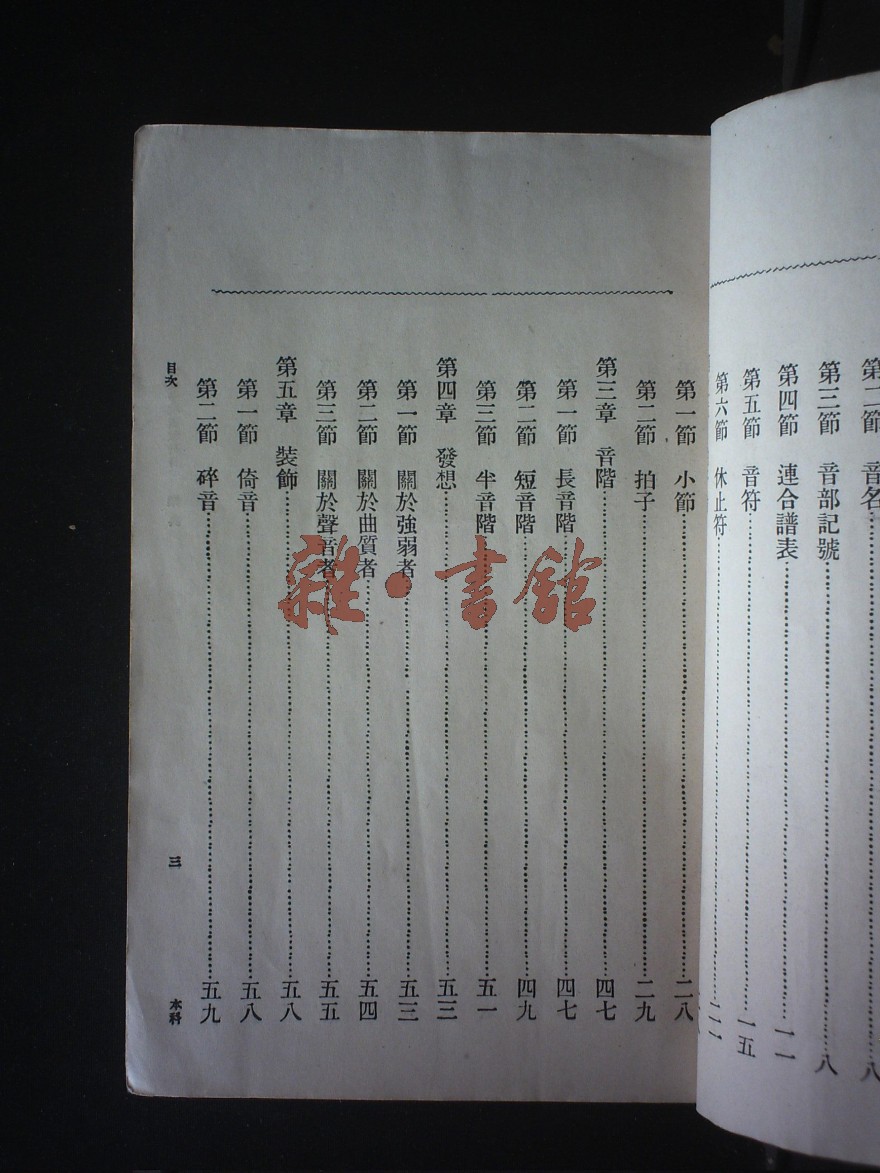 第二節 音名……八
第三節 音部記號……八
第四節 連合譜表……一一
第五節 音符……一五
第六節 休止符……
第一節 小節……二八
第二節 拍子……二九
第三章 音階……四七
第一節 長音階……四七
第二節 短音階……四九
第三節 半音階……五一
第四章 發想……五三
第一節 關於強弱者……五三
第二節 關於曲質者……五四
第三節 關於聲音者……五五
第五章 裝飾……五八
第一節 倚音……五八
第二節 碎音……五九
目次 三 本科
雜·書館